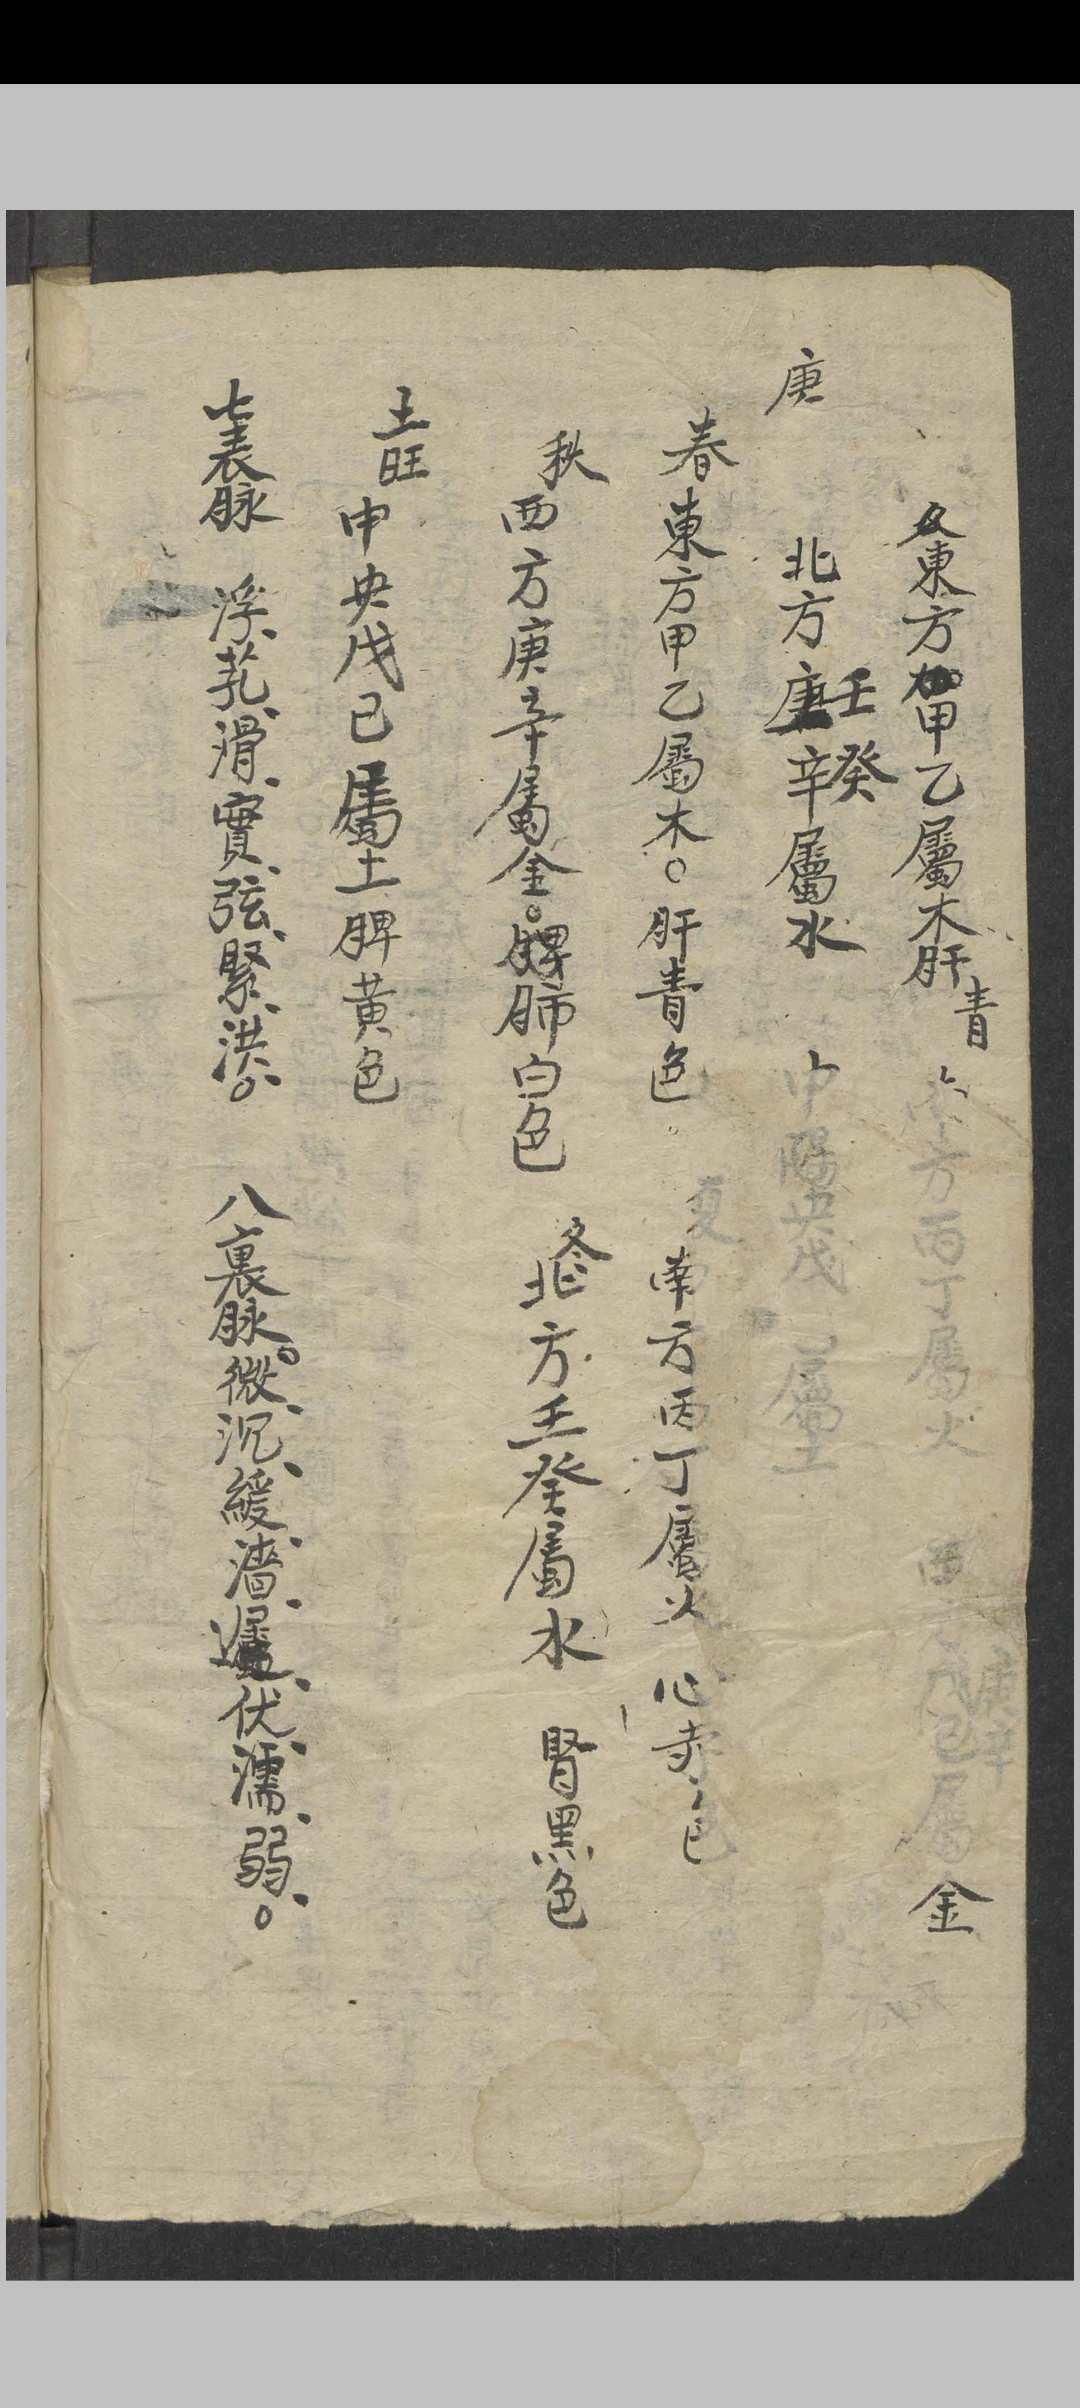 東方甲乙屬木肝青 方丙丁屬火 西 戊己屬金
庚辛
庚
北方庚辛屬水 中央戊己屬土
壬癸
春 東方甲乙屬木。肝青色 夏 南方丙丁屬火 心赤色
秋 西方庚辛屬金。肺白色 冬 北方壬癸屬水 腎黑色
土旺 中央戊己屬土脾黄色
七表脉 浮、芤、滑、實、弦、緊、洪。 八裏脉。微、沉、緩、濇、遲、伏、濡、弱。